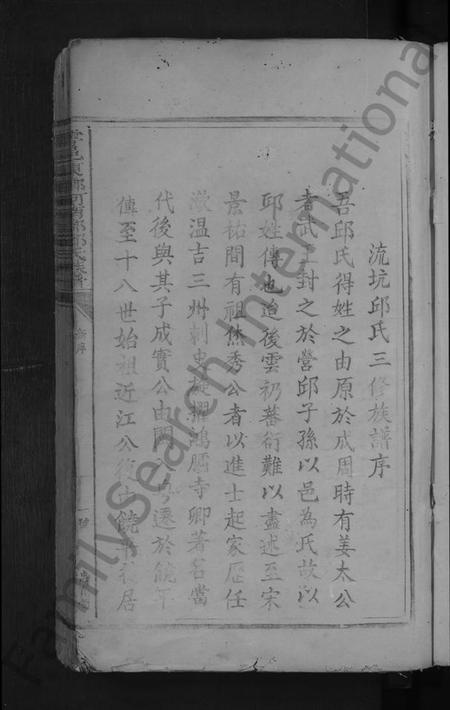 流坑邱氏三修族譜序
吾邱氏得姓之由原於成周時有姜太公
者武王封之於營邱子孫以邑為氏故以
邱姓傳也迨後雲礽蕃衍難以盡述至宋
景祐間有祖烋秀公者以進士起家歷任
溫吉三州刺史旋擢鴻臚寺卿著名當
代後與其子成實公由閩遷於饒平
傳至十八世始祖近江公後由饒平居
FamilySearch International